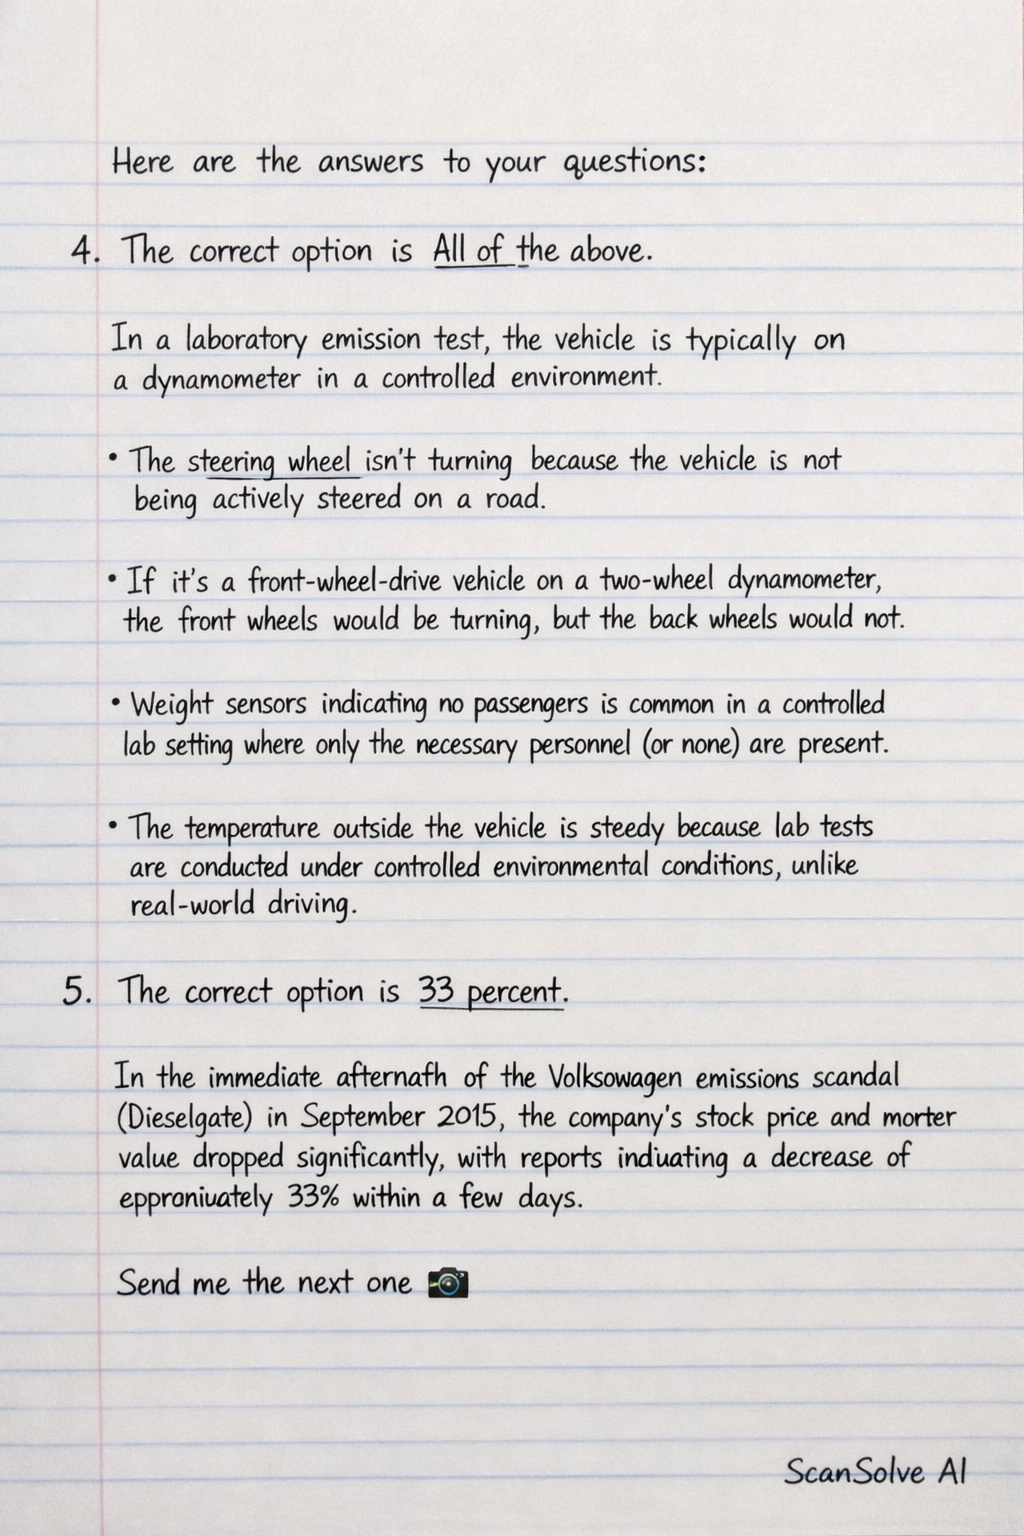 Here are the answers to your questions:
4. The correct option is All of the above.
In a laboratory emission test, the vehicle is typically on
a dynamometer in a controlled environment.
• The steering wheel isn't turning because the vehicle is not
being actively steered on a road.
• If it's a front-wheel-drive vehicle on a two-wheel dynamometer,
the front wheels would be turning, but the back wheels would not.
• Weight sensors indicating no passengers is common in a controlled
lab setting where only the necessary personnel (or none) are present.
• The temperature outside the vehicle is steedy because lab tests
are conducted under controlled environmental conditions, unlike
real-world driving.
5. The correct option is 33 percent.
In the immediate afternafh of the Volksowagen emissions scandal
(Dieselgate) in September 2015, the company's stock price and morter
value dropped significantly, with reports indiuating a decrease of
epproniuately 33% within a few days.
Send me the next one
ScanSolve AI